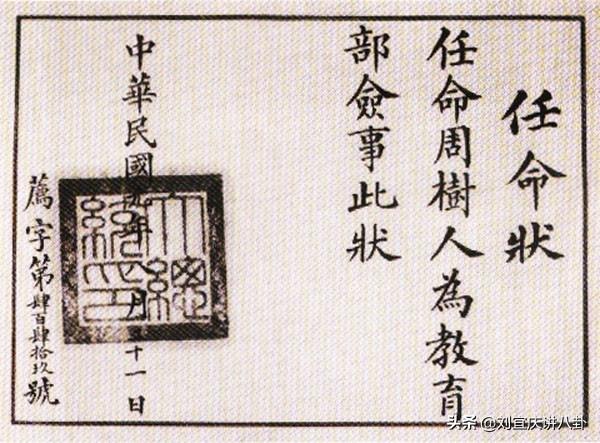 任命狀
任命周樹人為教育
部僉事此狀
中華民國年月二十一日
大總統印
薦字第肆百肆拾玖號
头条 @刘宣庆讲八卦